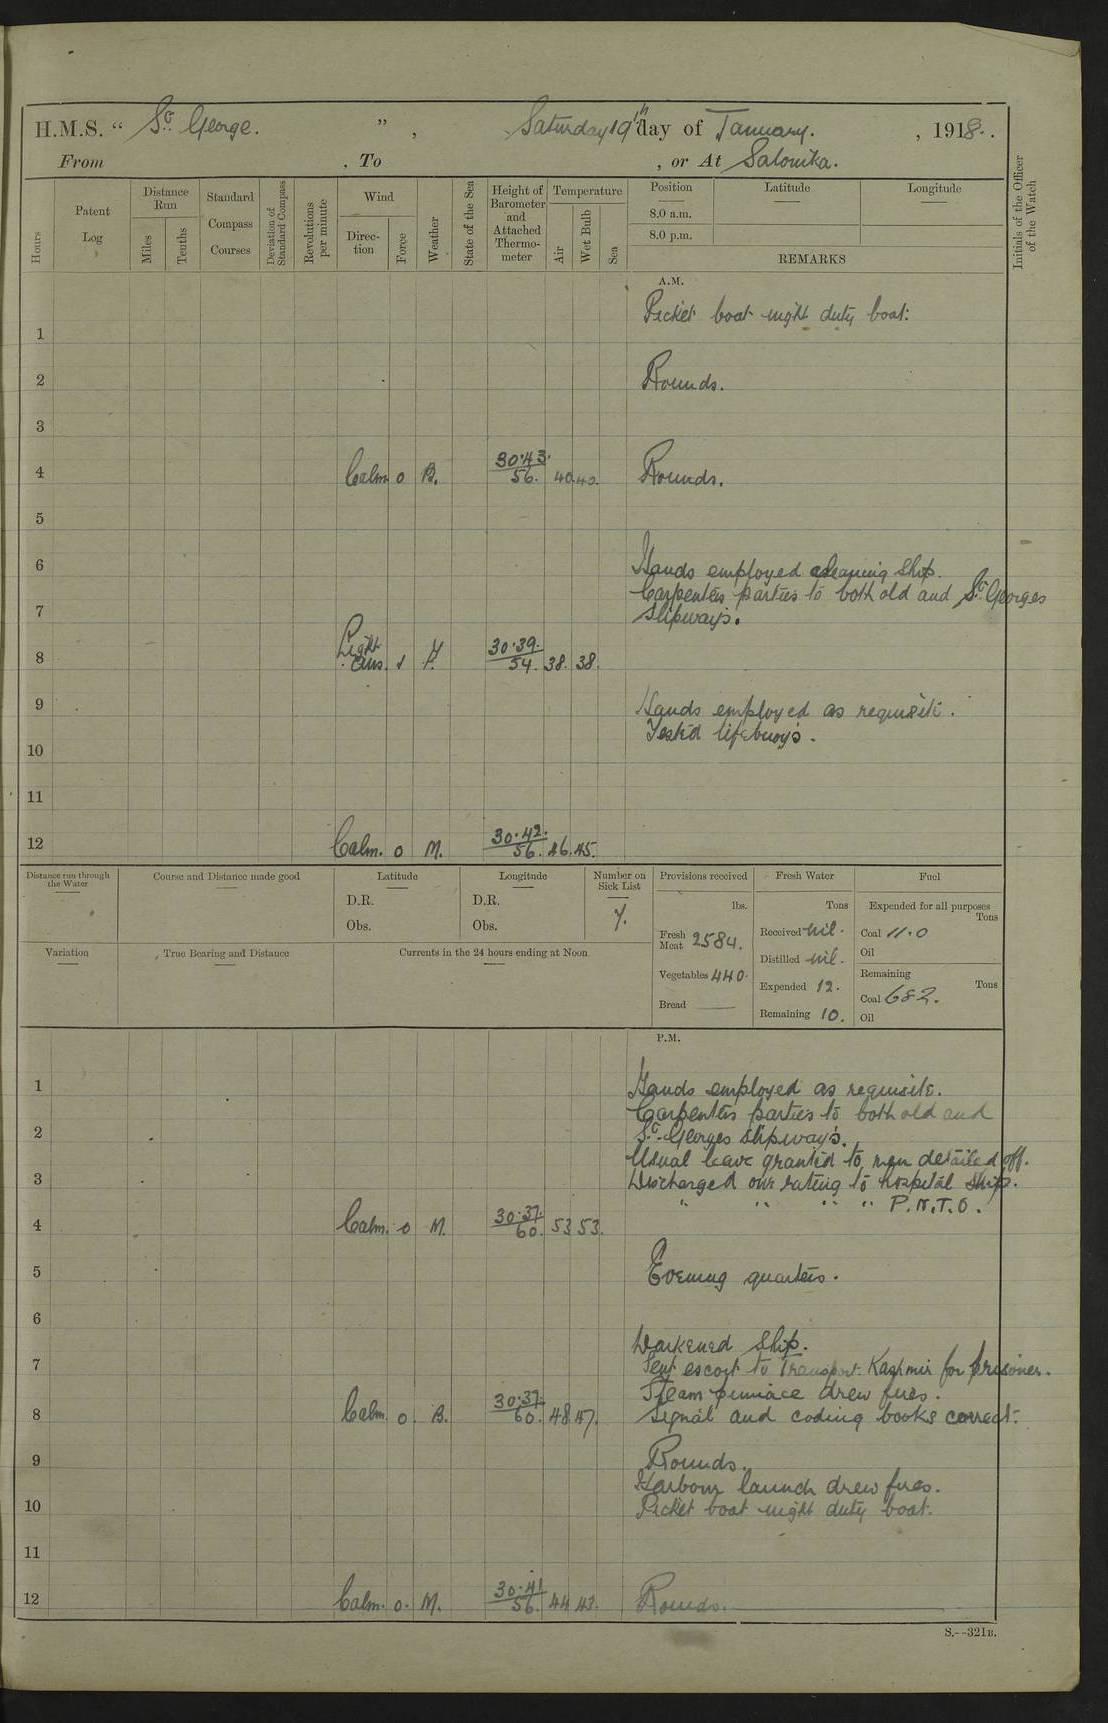 H.M.S. " St George. " , Saturday 19th day of January. , 1918.
From , To , or At Salonika.
Hours
Patent Log
Distance Run
Miles
Tenths
Standard Compass Courses
Deviation of Standard Compass
Revolutions per minute
Wind
Direction
Force
Weather
State of the Sea
Height of Barometer and Attached Thermometer
Temperature
Air
Wet Bulb
Sea
Position
8.0 a.m.
8.0 p.m.
Latitude
Longitude
REMARKS
Initials of the Officer of the Watch
A.M.
Picket boat night duty boat.
1
2 Rounds.
3
4 Calm 0 B. 30.43. 56. 40. 40. Rounds.
5
6 Hands employed cleaning ship.
Carpenters parties to both old and St Georges
7 slipways.
8 Light airs. 1 30.39. 54. 38. 38.
9 Hands employed as requisite.
Tested lifebuoys.
10
11
12 Calm. 0 M. 30.42. 56. 46. 45.
Distance run through the Water
Course and Distance made good
Latitude
D.R.
Obs.
Longitude
D.R.
Obs.
Number on Sick List
7.
Provisions received
lbs.
Fresh Meat 2584.
Vegetables 440.
Bread
Fresh Water
Tons
Received nil.
Distilled nil.
Expended 12.
Remaining 10.
Fuel
Expended for all purposes
Tons
Coal 11.0
Oil
Remaining
Tons
Coal 682.
Oil
Variation
True Bearing and Distance
Currents in the 24 hours ending at Noon
P.M.
1 Hands employed as requisite.
Carpenters parties to both old and
2 St. Georges slipways.
Usual leave granted to men detailed off.
3 Discharged one rating to hospital ship.
" " " " P.N.T.O.
4 Calm. 0 M. 30.37. 60. 53 53.
5 Evening quarters.
6
Darkened ship.
7 Sent escort to Transport Kashmir for prisoner.
Steam pinnace drew fires.
8 Calm. 0. B. 30.37. 60. 48 47. Signal and coding books correct.
9 Rounds.
Harbour launch drew fires.
10 Picket boat night duty boat.
11
12 Calm. 0. M. 30.41 56. 44 43. Rounds.
S.--321B.